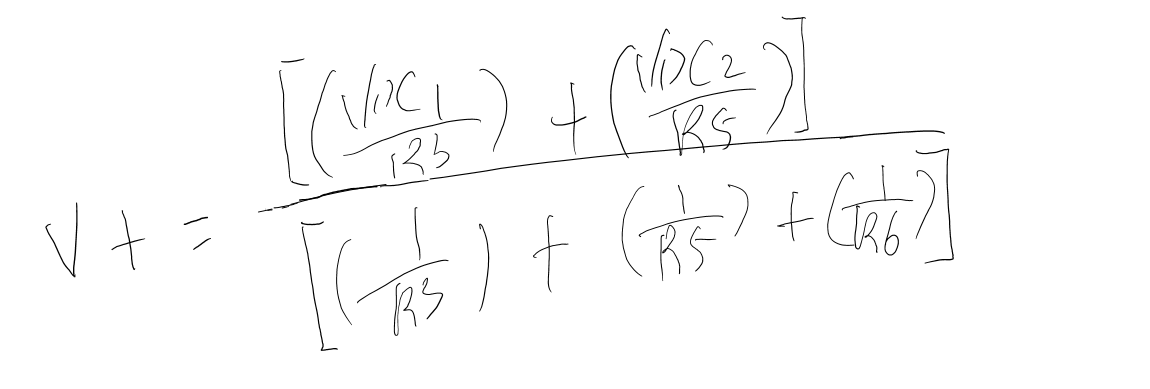 V+ = [(VDC1/R3) + (VDC2/R5)] / [(1/R3) + (1/R5) + (1/R6)]